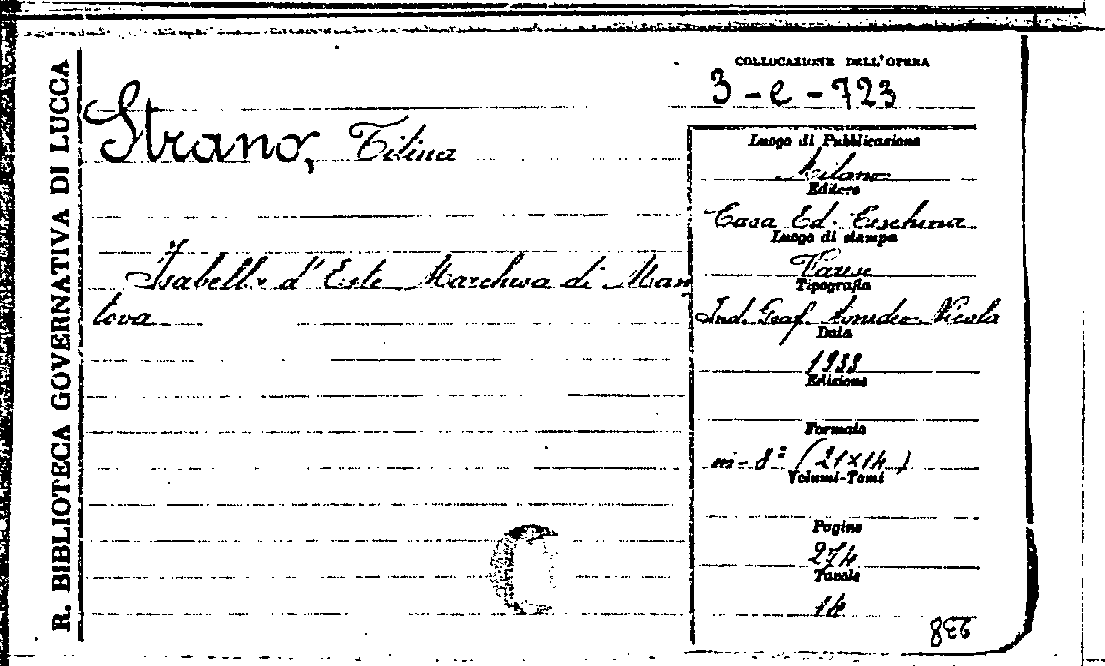 R. BIBLIOTECA GOVERNATIVA DI LUCCA
COLLOCAZIONE DELL'OPERA
3-e-723
Strano, Titina
Isabella d'Este Marchesa di Man
tova
Luogo di Pubblicazione
Milano
Editore
Casa Ed. Ceschina
Luogo di stampa
Varese
Tipografia
Ind. Graf. Amedeo Nicola
Data
1938
Edizione
Formato
in-8º (21x14)
Volumi-Tomi
Pagine
274
Tavole
14
938